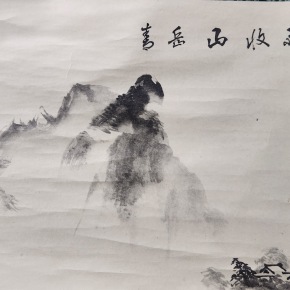 收山岳青